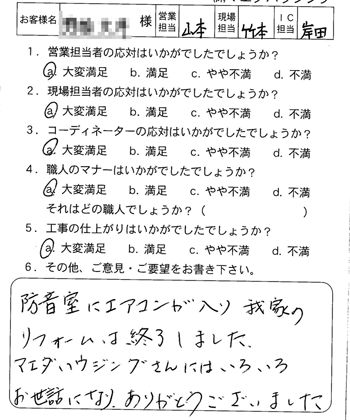 お客様名 様 営業担当 山本 現場担当 竹本 IC担当 岸田
1．営業担当者の応対はいかがでしたでしょうか？
a. 大変満足 b. 満足 c. やや不満 d. 不満
2．現場担当者の応対はいかがでしたでしょうか？
a. 大変満足 b. 満足 c. やや不満 d. 不満
3．コーディネーターの応対はいかがでしたでしょうか？
a. 大変満足 b. 満足 c. やや不満 d. 不満
4．職人のマナーはいかがでしたでしょうか？
a. 大変満足 b. 満足 c. やや不満 d. 不満
それはどの職人でしょうか？（ ）
5．工事の仕上がりはいかがでしたでしょうか？
a. 大変満足 b. 満足 c. やや不満 d. 不満
6．その他、ご意見・ご要望をお書き下さい。
防音室にエアコンが入り 我家の
リフォームは終了しました.
マエダハウジングさんにはいろいろ
お世話になり、ありがとうございました